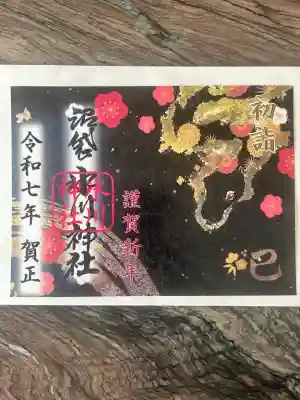 初詣
巳
謹賀新年
沼袋氷川神社
氷川
神社
令和七年 賀正